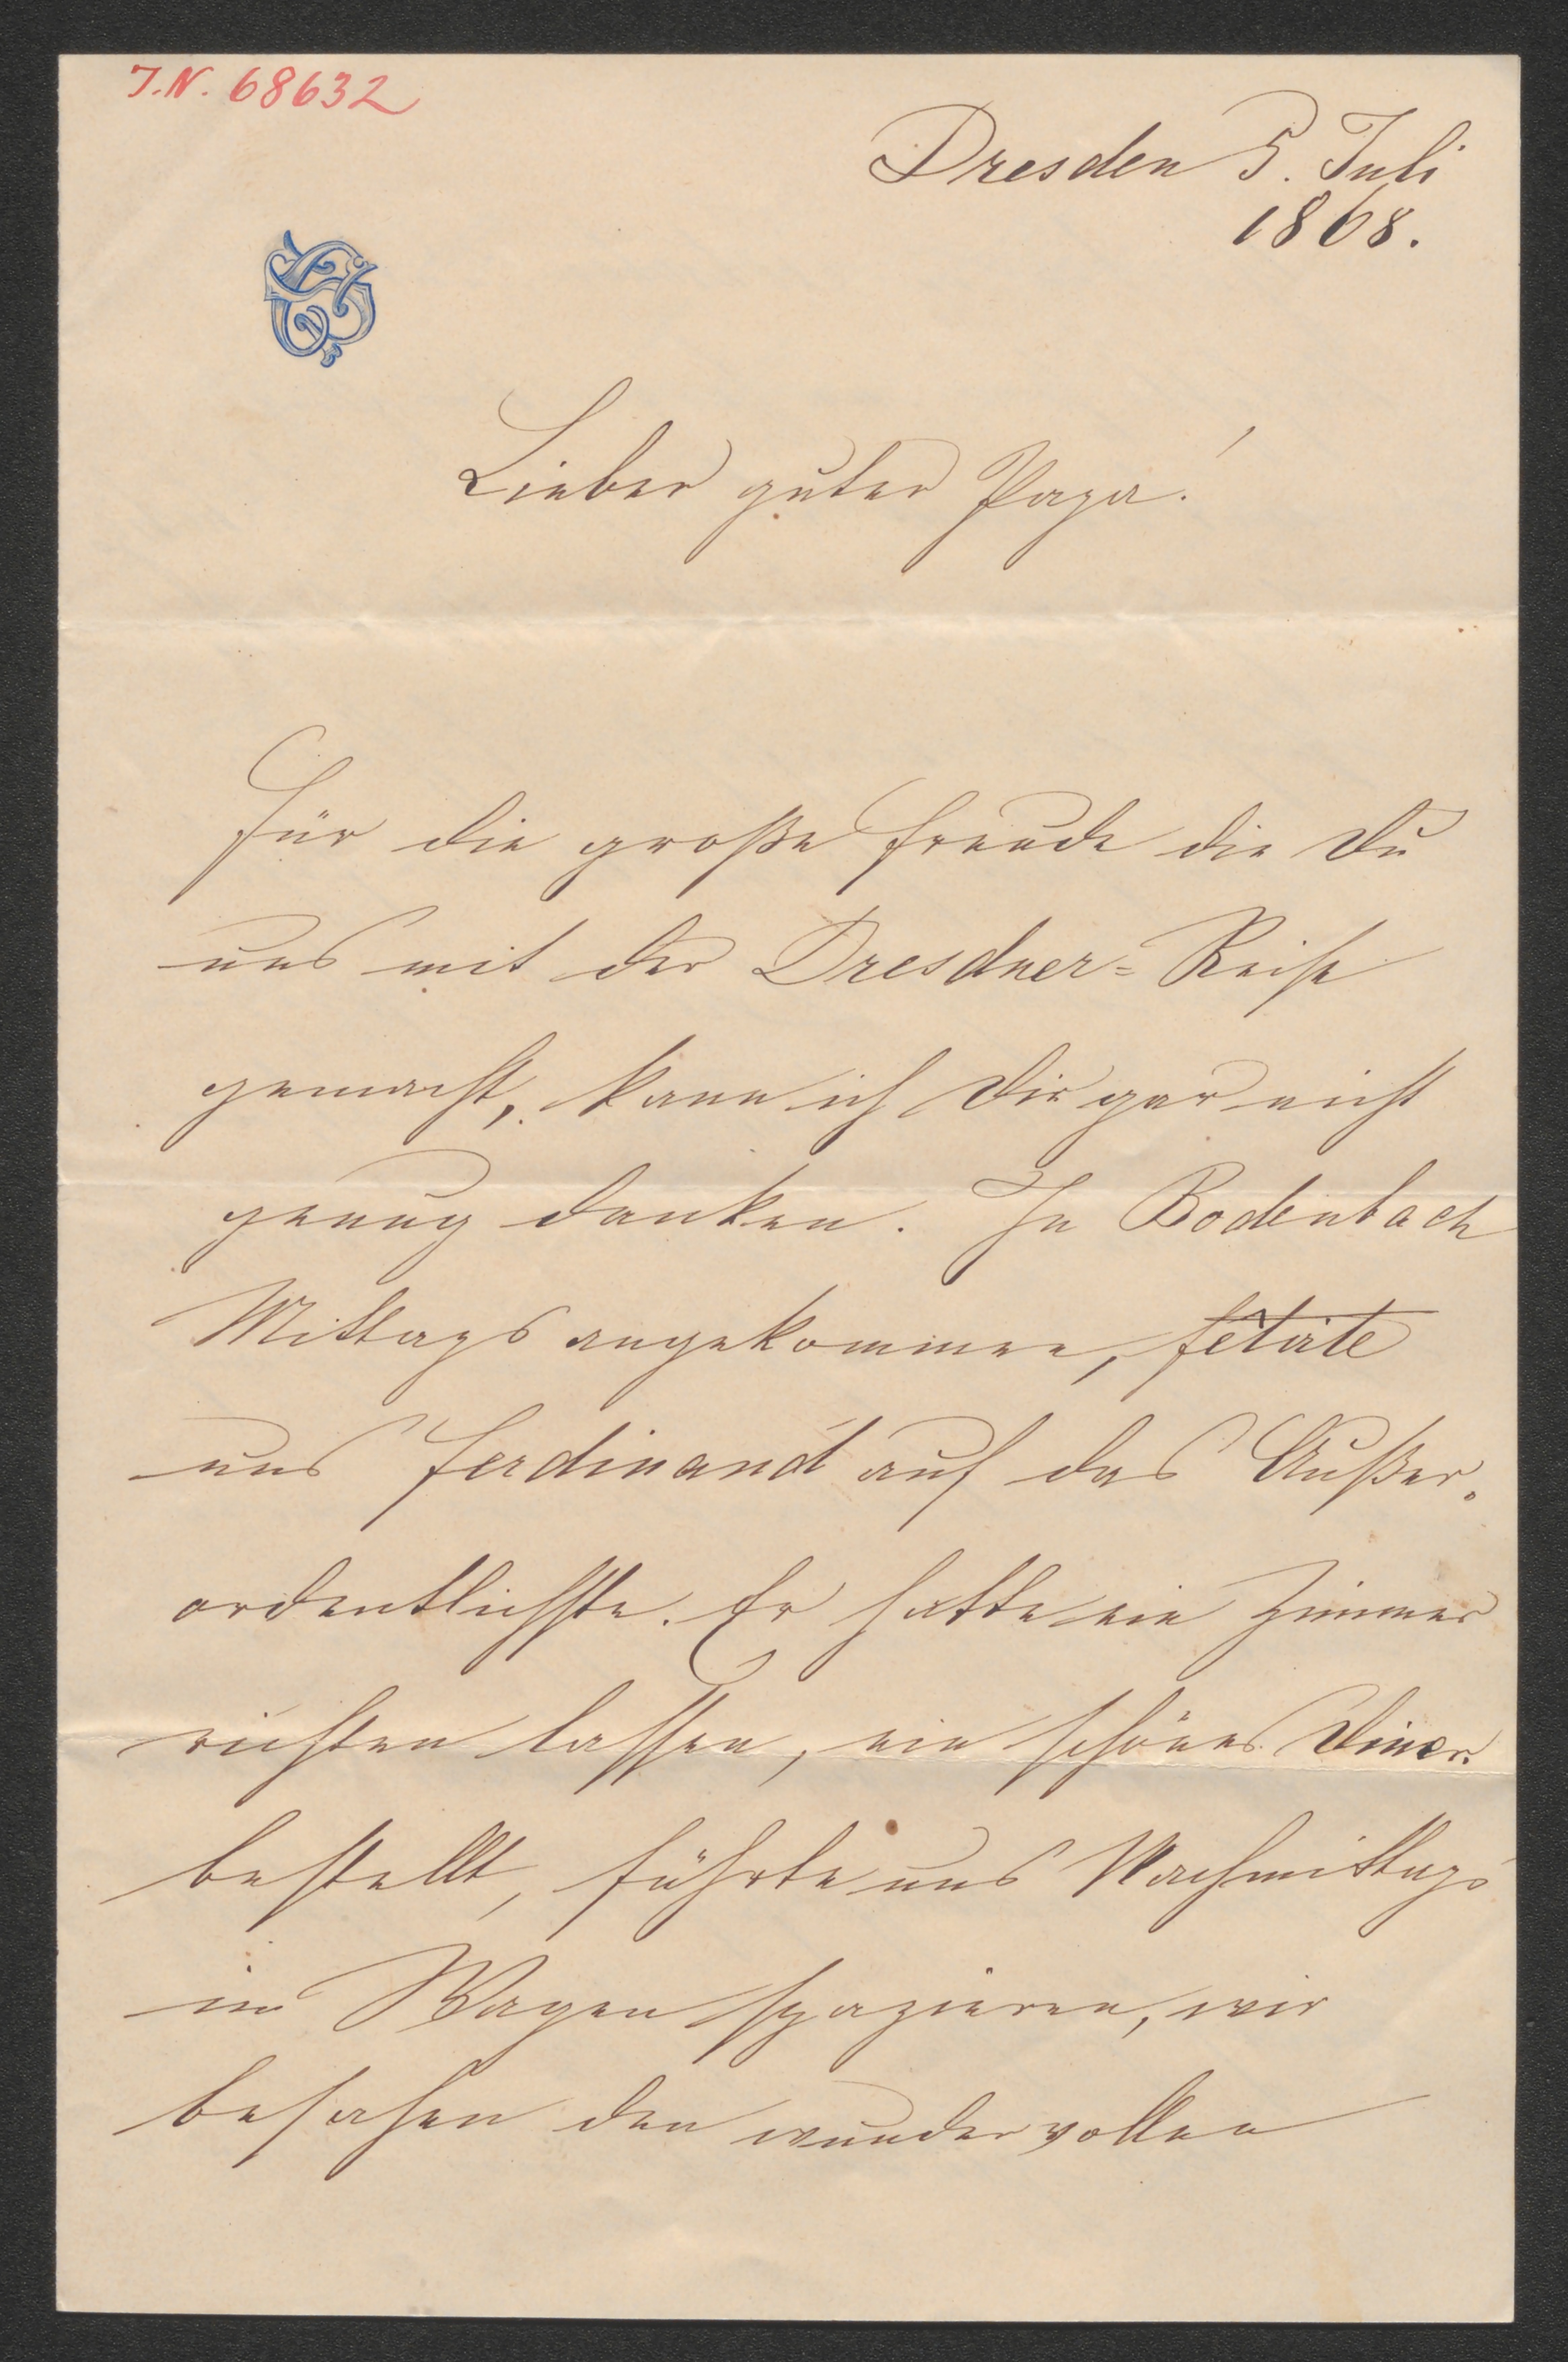 J.N. 68632
Dresden 5. Juli
1868.
Lieber guter Papa!
Für die große Freude die Du
uns mit der Dresdner=Reise
gemacht, kann ich Dir gar nicht
genug danken. In Bodenbach
Mittags angekommen, fêtirte
uns Ferdinand auf das Außer-
ordentlichste. Er hatte ein Zimmer
richten lassen, ein schönes Diner
bestellt, führte uns Nachmittags
im Wagen spazieren, wir
besahen den wundervollen